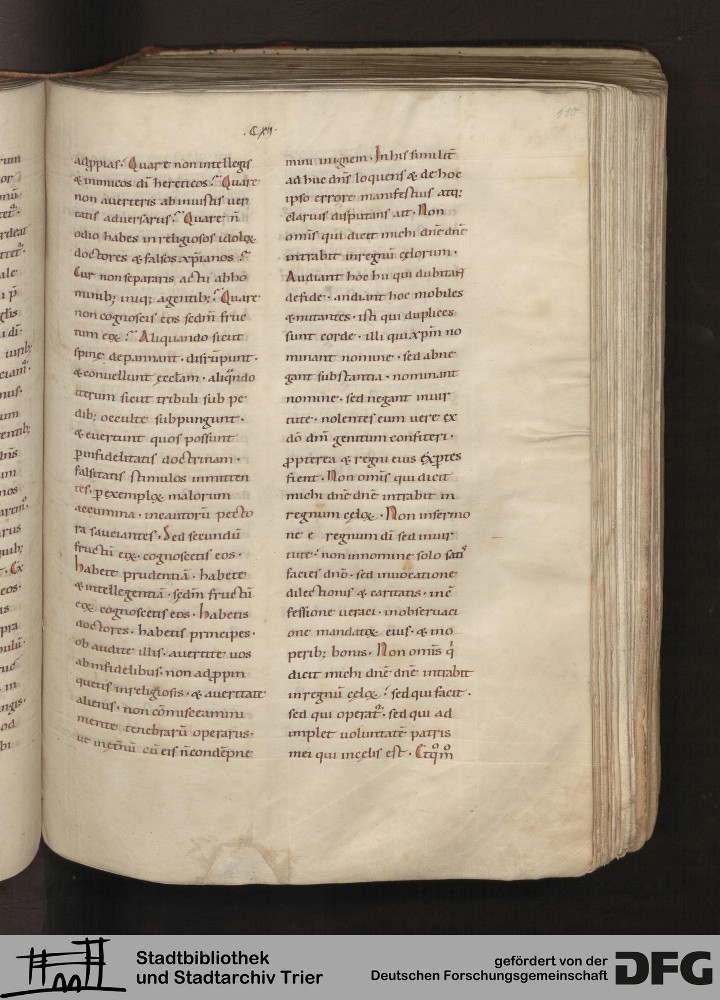 .CXII.
adp̄pias. Quare non intellegis
& inimicos dī hereticos. Quare
non auerteris ab iniustis ueri
tatis aduersarus. Quare n̄
odio habes inreligiosos idolox
doctores & falsos xp̄ianos.
Cur non separaris actu abho
minib; iniq; agentib;. Quare
non cognoscis eos sedm̄ fruc
tum eox. Aliquando sicut
spine depannant. disrūpunt.
& conuellunt eccl̄am. aliqn̄do
iterum sicut tribuli sub pe
dib; occulte subpungunt.
& euertunt quos possunt
p̄ infidelitatis doctrinam.
falsitatis stimulos immitten
tes. p̄ exemplox malorum
accumina. incautorū pecto
ra sauciantes. Sed secundū
fructū eix. cognoscetis eos.
habete prudentiā. habete
& intellegentiā. sedm̄ fructū
eox cognoscetis eos. habetis
doctores. habetis principes.
obaudite illis. auertite uos
ab infidelibus. non adp̄pin
quetis inreligiosis. & auertati
alienis. non cōmisceamini
mente tenebrarū operarus.
ut inet̄nū cū eis n̄ condēpne
mini in ignem. In his similit̄
adhuc dn̄s loquens & de hoc
ipso errore manifestius atq;
clarius disputans ait. Non
omīs qui dicit michi dn̄e dn̄e
intrabit inregnū cęlorum.
Audiant hoc hii qui dubitant
defide. audiant hoc mobiles
& nutantes. isti qui duplices
sunt corde. illi qui xp̄m no
minant nomine. sed abne
gant substantia. nominant
nomine. sed negant uirtu
tute. nolentes eum uere ex
dō dn̄m genitum confiteri.
p̄pterea & regni eius exp̄tes
fient. Non omīs qui dicit
michi dn̄e dn̄e intrabit in
regnum cęlox. Non insermo
ne ē regnum dī sed inuir
tute. non innomine solo sati
facies dn̄o. sed inuocatione
dilectionis & caritatis. incō
fessione ueraci. inobseruaci
one mandatox eius. & in o
perib; bonis. Non omīs q̄
dicit michi dn̄e dn̄e intrabit
inregnū cęlox. sed qui facit.
sed qui operat̄. sed qui ad
implet uoluntatē patris
mei qui incęlis est.
Stadtbibliothek
und Stadtarchiv Trier
gefördert von der
Deutschen Forschungsgemeinschaft
DFG